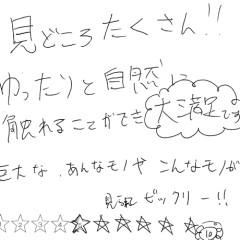 見どころたくさん!!
ゆったりと自然に
触れることができ大満足です
巨大な、あんなモノや こんなモノが
見られ ビックリー!!
☆☆☆☆★★★★★★ 10